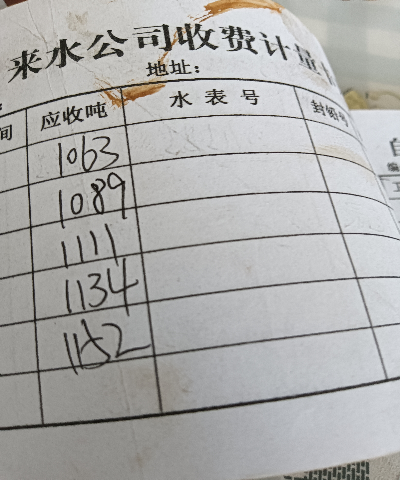 来水公司收费计量
地址：
间 应收吨 水表号 封铅号
1063
1089
1111
1134
1152